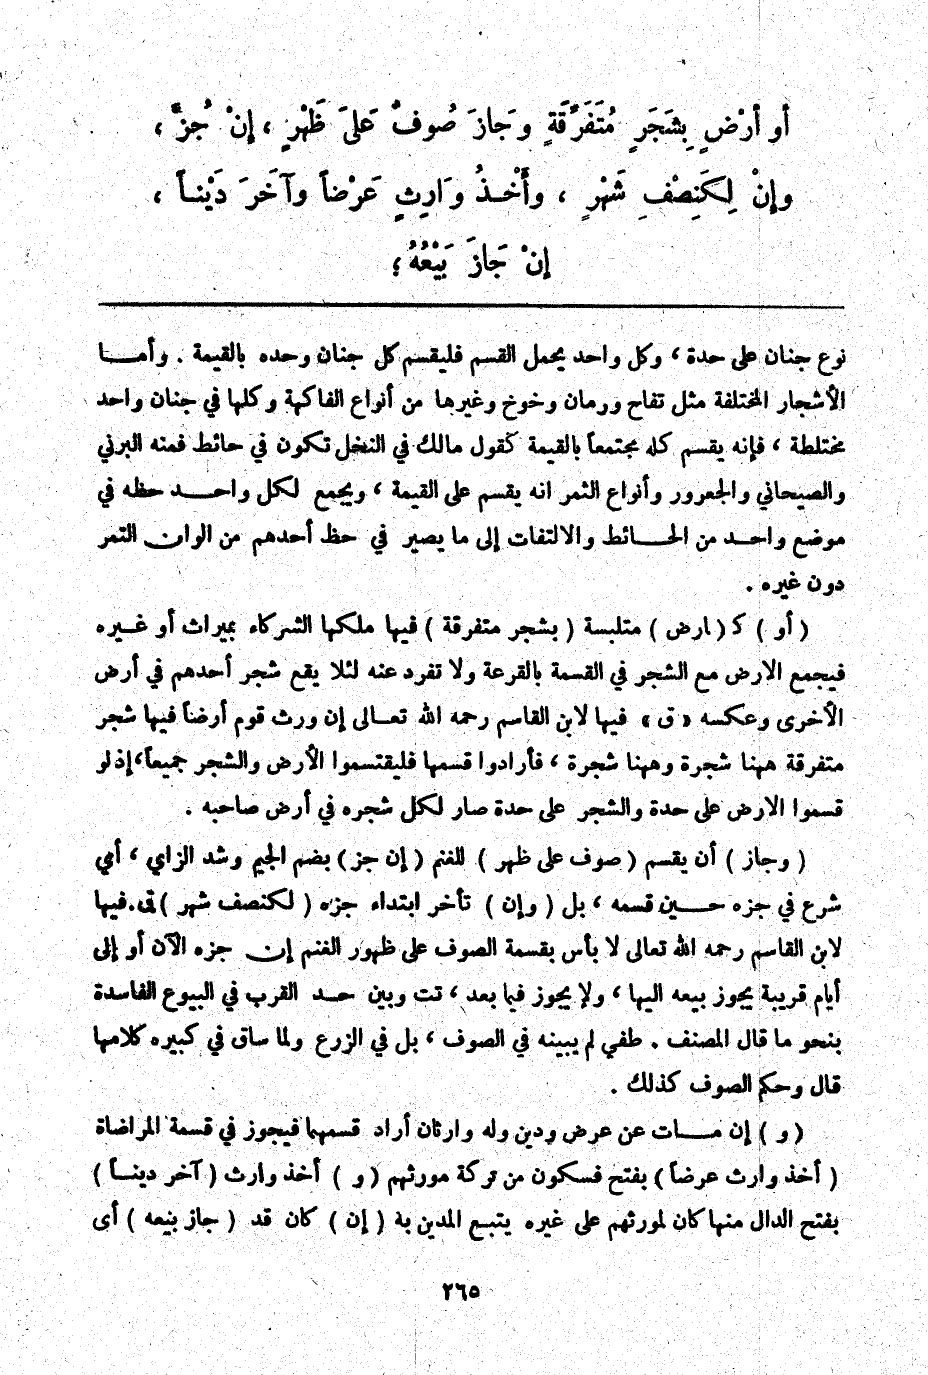 أو أرْضٍ بِشَجَرٍ مُتَفَرِّقَةٍ وَجَازَ صُوفٌ عَلىَ ظَهْرٍ ، إنْ جُزَّ ،
وإنْ لِكَنِصْفِ شَهْرٍ ، وأَخْـذُ وَارِثٍ عَرْضاً وآخَرَ دَيْنـاً ،
إنْ جَازَ بَيْعُهُ ؛
نوع جنان على حدة ، وكل واحد يحمل القسم فليقسم كل جنان وحده بالقيمة . وأمـــا
الأشجار المختلفة مثل تفاح ورمان وخوخ وغيرها من أنواع الفاكهة وكلها في جنان واحد
مختلطة ، فإنه يقسم كله مجتمعاً بالقيمة كقول مالك في النخل تكون في حائط فمنه البرني
والصيحاني والجعرور وأنواع الثمر انه يقسم على القيمة ، ويجمع لكل واحـــد حظه في
موضع واحـد من الحـــائط والالتفات إلى ما يصير في حظ أحدهم من الوان التمر
دون غيره .
( أو ) كـ ( ارض ) متلبسة ( بشجر متفرقة ) فيها ملكها الشركاء بميراث أو غـيره
فيجمع الارض مع الشجر في القسمة بالقرعة ولا تفرد عنه لئلا يقع شجر أحدهم في أرض
الأخرى وعكسه « ق » فيها لابن القاسم رحمه الله تعـالى إن ورث قوم أرضاً فيها شجر
متفرقة ههنا شجرة وههنا شجرة ، فأرادوا قسمها فليقتسموا الأرض والشجر جميعاً، إذ لو
قسموا الارض على حدة والشجر على حدة صار لكل شجره في أرض صاحبه .
( وجاز ) أن يقسم ( صوف على ظهر ) للغنم ( إن جز ) بضم الجيم وشد الزاي ، أمي
شرع في جزه حـــين قسمه ، بل ( وإن ) تأخر ابتداء جزه ( لكنصف شهر ) ق . فيها
لابن القاسم رحمه الله تعالى لا بأس بقسمة الصوف على ظهور الغنم إن جزه الآن أو إلى
أيام قريبة يجوز بيعه اليها ، ولا يجوز فيما بعد ، تت وبين حـد القرب في البيوع الفاسدة
بنحو ما قال المصنف . طفي لم يبينه في الصوف ، بل في الزرع ولما ساق في كبيره كلامها
قال وحكم الصوف كذلك .
( و ) إن مـــات عن عرض ودين وله وارثان أراد قسمهما فيجوز في قسمة المراضاة
( أخذ وارث عرضاً ) بفتح فسكون من تركة مورثهم ( و ) أخذ وارث ( آخر دينـــاً )
بفتح الدال منها كان لمورثهم على غيره يتبـع المدين به ( إن ) كان قد ( جاز بيعه ) أى
٢٦٥